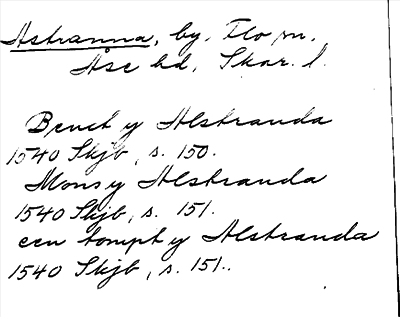 Astranna, by. Flo sn.
Åse hd, Skar. l.
Benct y Alstranda
1540 Skjb, s. 150.
Mons y Alstranda
1540 Skjb, s. 151.
een tompt y Alstranda
1540 Skjb, s. 151.